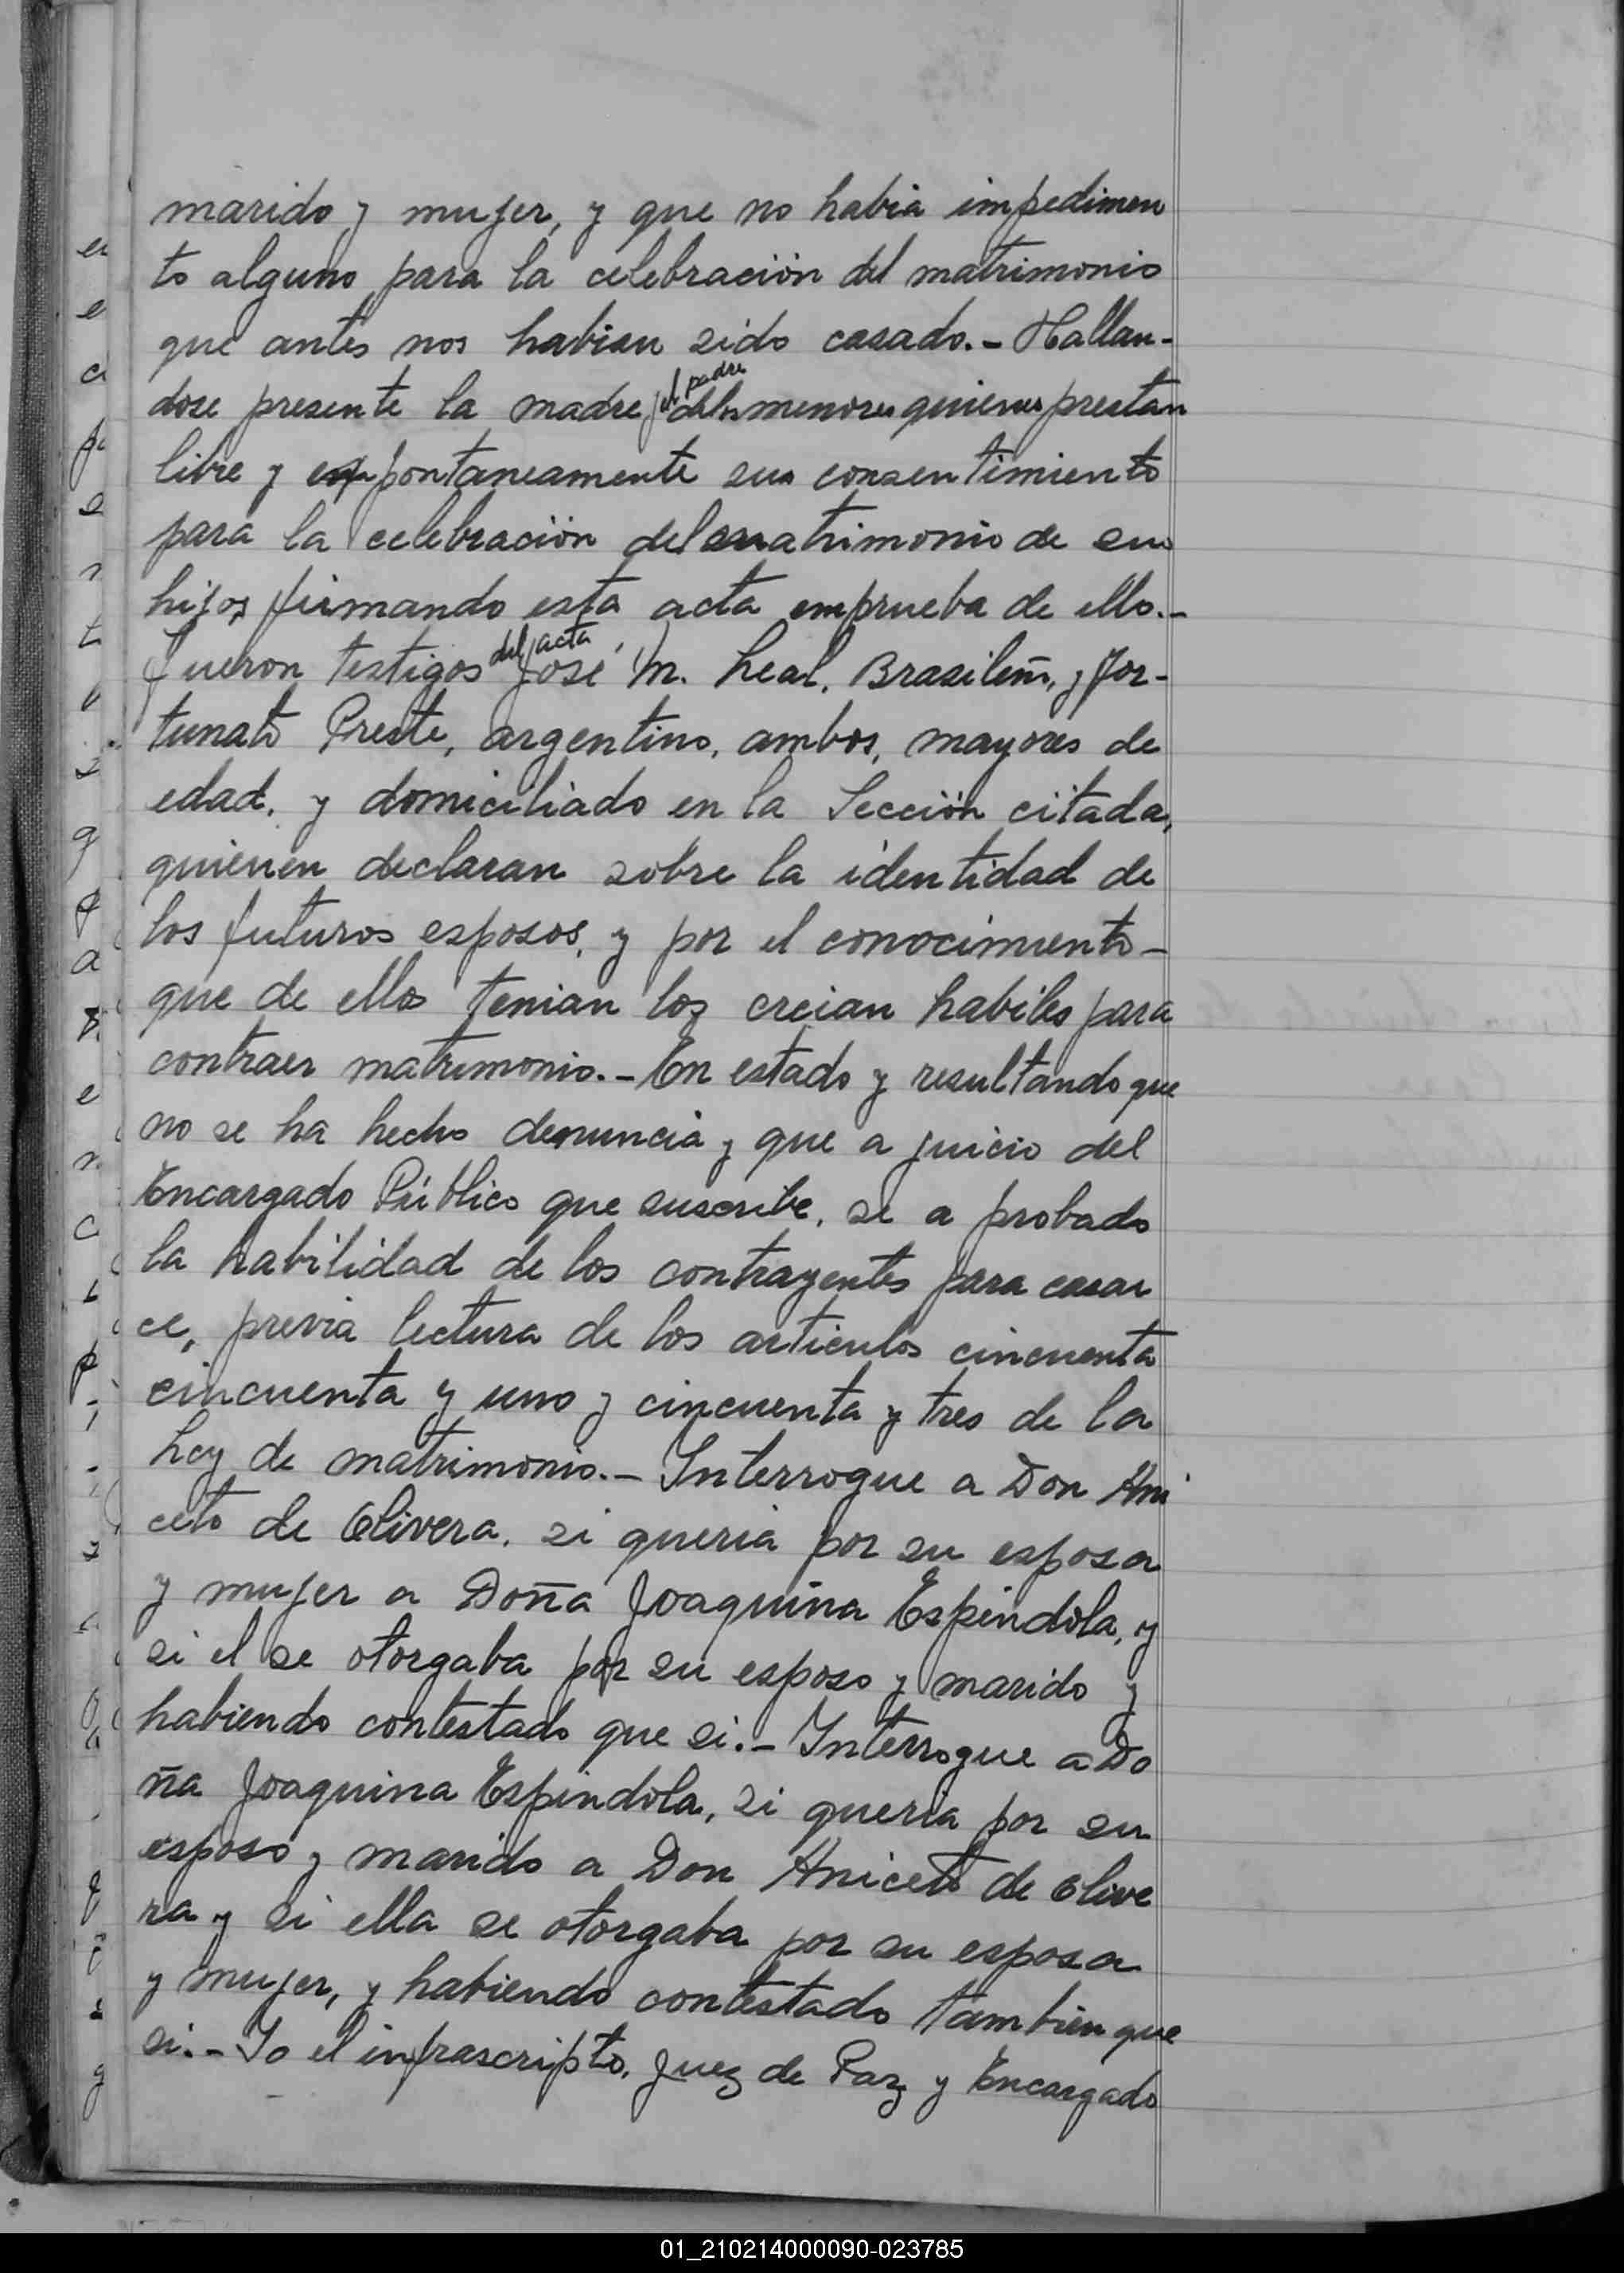 marido y mujer, y que no habia impedimen
to alguno para la celebración del matrimonio
que antes nos habian sido casado.- Hallan-
dose presente la madre y el padre de los menores quienes prestan
libre y espontaneamente sus consentimiento
para la celebración del matrimonio de sus
hijos, firmando esta acta en prueba de ello.-
fueron testigos del acta José M. Leal, Brasileño, y For-
tunato Preste, argentino, ambos, mayores de
edad, y domiciliado en la Sección citada,
quienen declaran sobre la identidad de
los futuros esposos, y por el conocimiento-
que de ellos tenian los creian habiles para
contraer matrimonio.- En estado y resultando que
no se ha hecho denuncia y que a juicio del
Encargado Público que suscribe, se a probado
la habilidad de los contrayentes para casar
ce, previa lectura de los articulos cincuenta
cincuenta y uno y cincuenta y tres de la
Ley de matrimonio.- Interrogue a Don Ani
ceto de Olivera, si queria por su esposa
y mujer a Doña Joaquina Espindola, y
si el se otorgaba por su esposo y marido y
habiendo contestado que si.- Interrogue a Do
ña Joaquina Espindola, si queria por su
esposo y marido a Don Aniceto de Olive
ra y si ella se otorgaba por su esposa
y mujer, y habiendo contestado tambien que
si.- Yo el infrascripto, Juez de Paz y Encargado
01_210214000090-023785